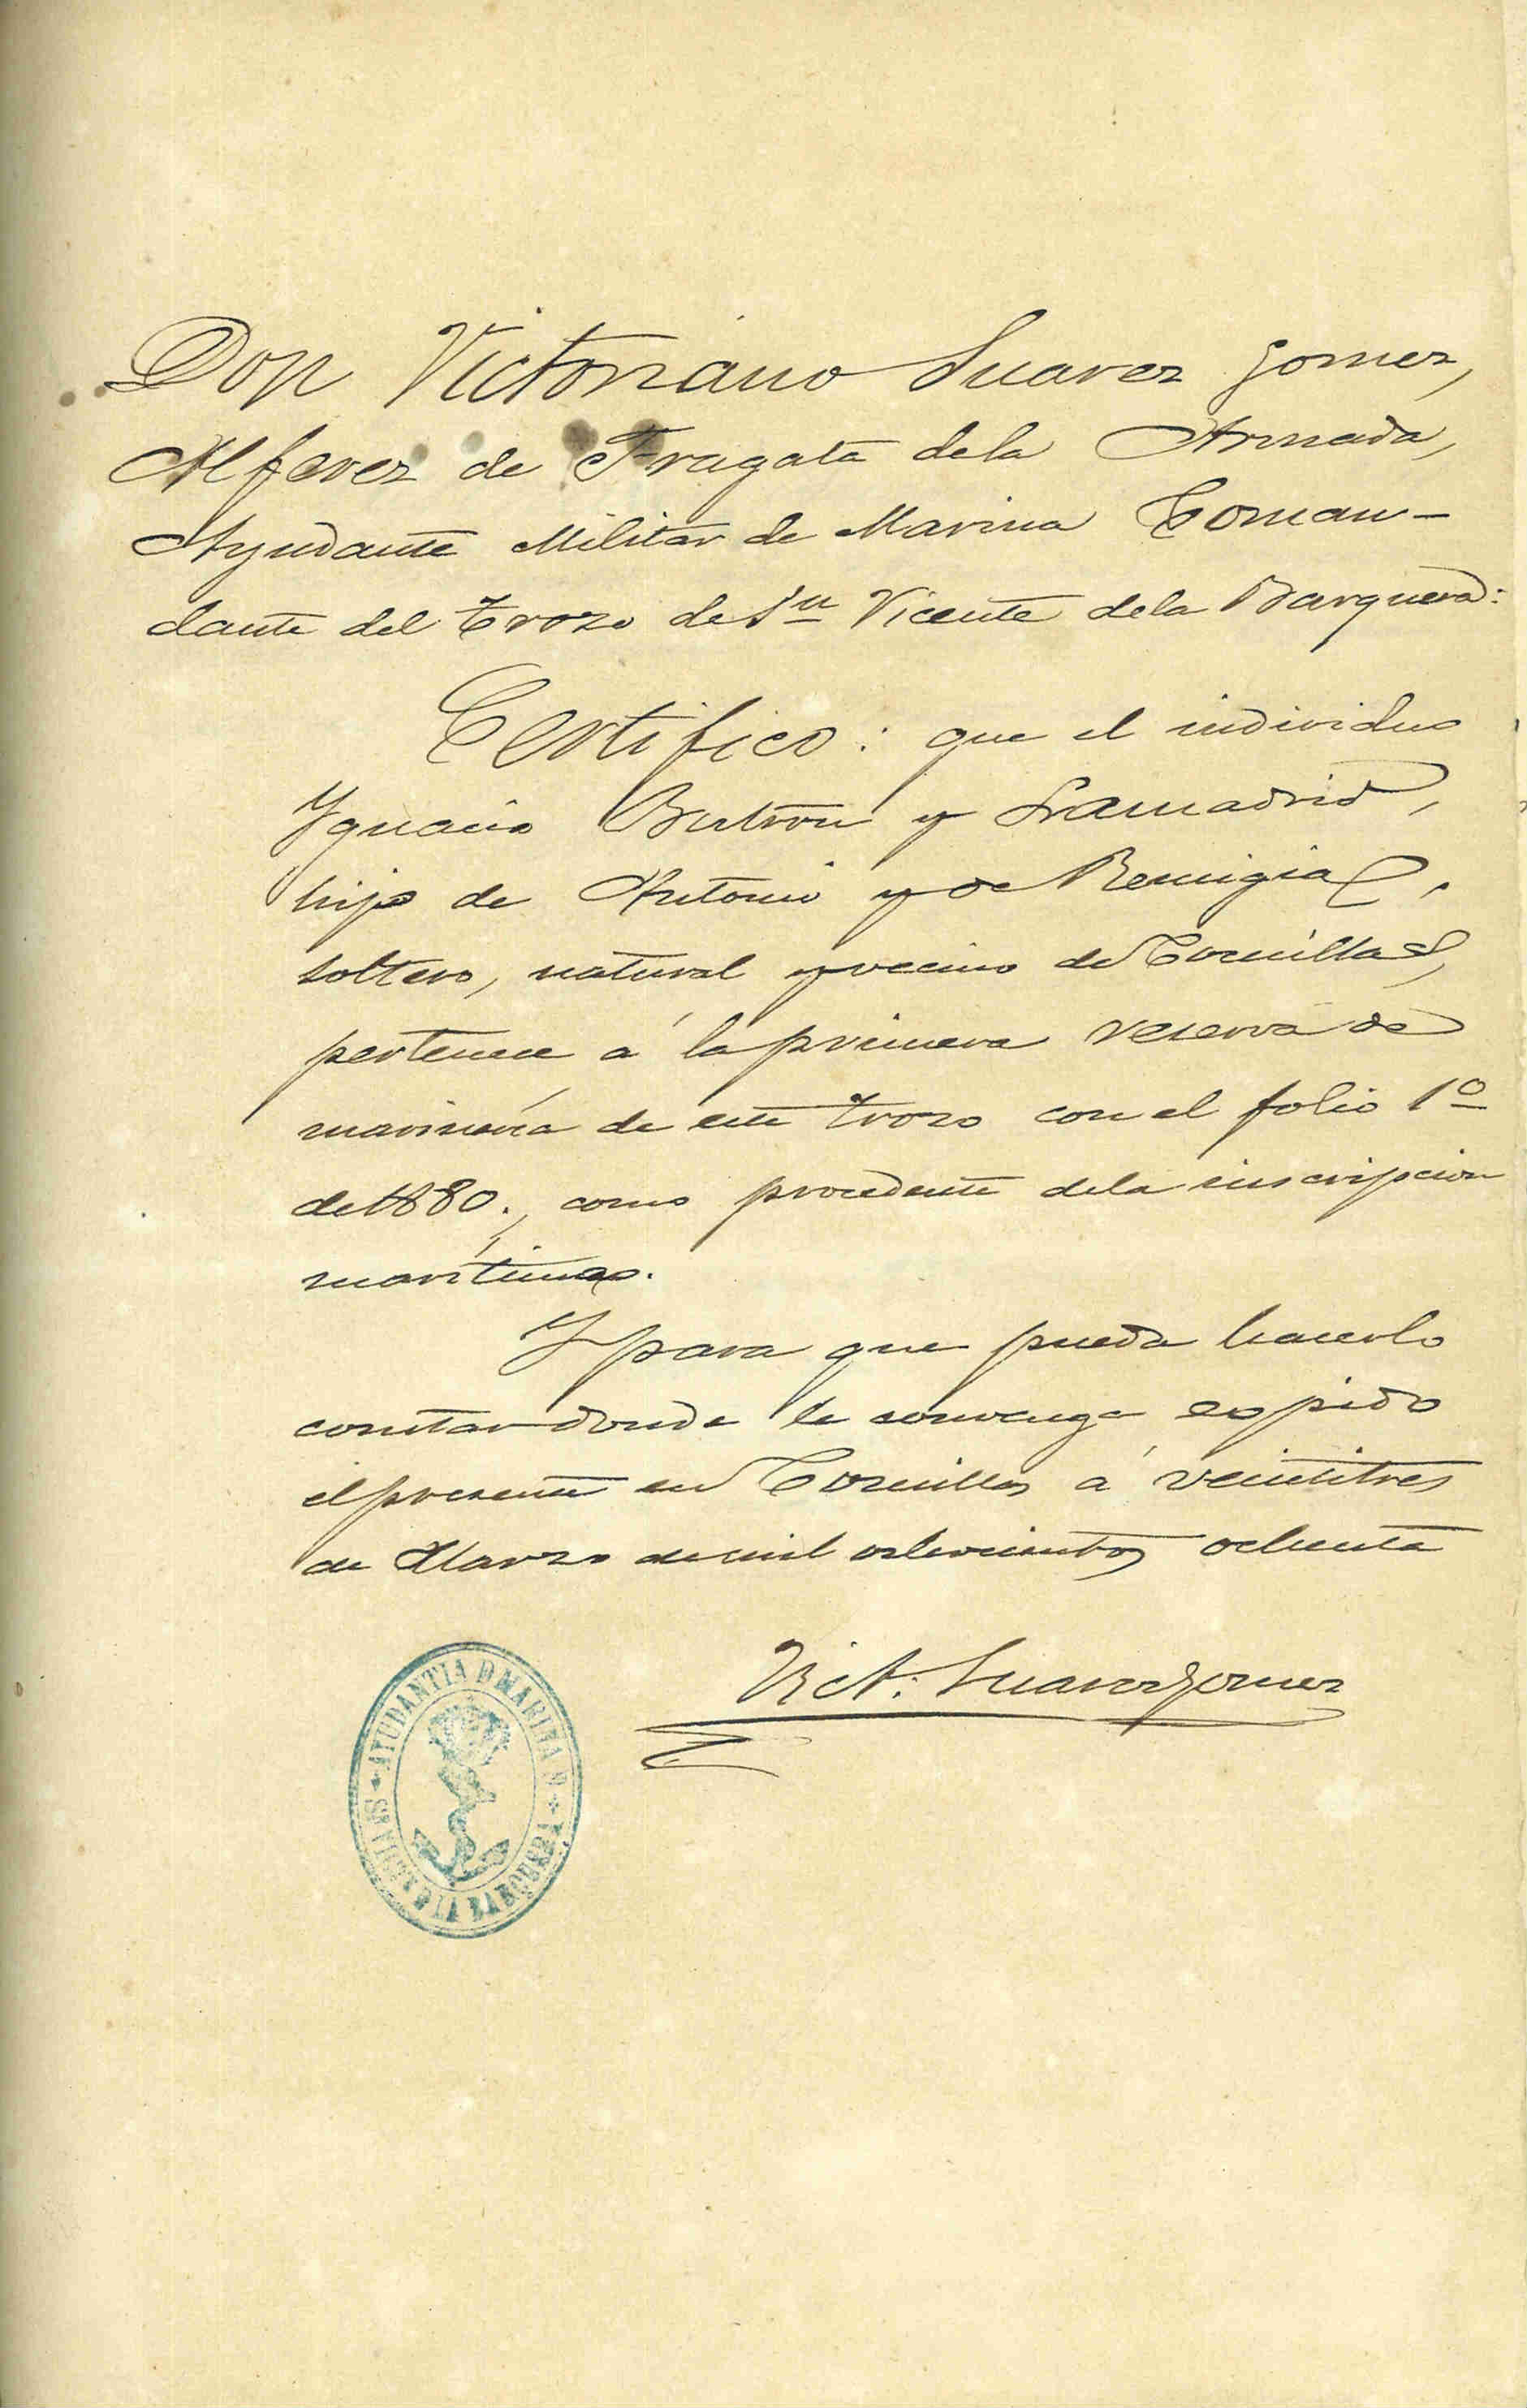 Don Victoriano Suarez Gomez,
Alferez de Fragata dela Armada,
Ayudante Militar de Marina Coman-
dante del trozo de Sn Vicente dela Barquera:
Certifico: que el individuo
Ygnacio Butron y Lamadrid,
hijo de Antonio y de Remigia,
soltero, natural y vecino de Comillas,
pertenece á la primera reserva de
marinería de este trozo con el folio 1º
de 1880., como procedente dela inscripcion
marítima.
Y para que pueda hacerlo
constar donde le convenga expido
el presente en Comillas á veintitres
de Marzo de mil ochocientos ochenta
Vict. Suarez Gomez
AYUDANTIA D MARINA D
SN VICTE D LA BARQUERA